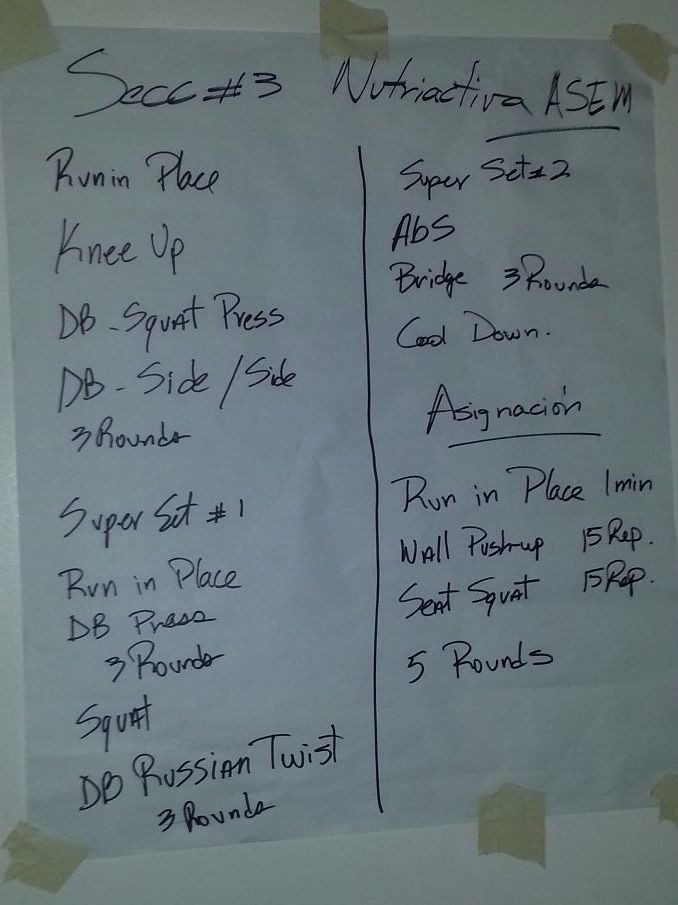 Secc #3 Nutriactiva ASEM
Run in Place
Knee Up
DB - Squat Press
DB - Side / Side
3 Rounds
Super Set #1
Run in Place
DB Press
3 Rounds
Squat
DB Russian Twist
3 Rounds
Super Set #2
Abs
Bridge 3 Rounds
Cool Down.
Asignación
Run in Place 1min
Wall Push-up 15 Rep.
Seat Squat 15 Rep.
5 Rounds